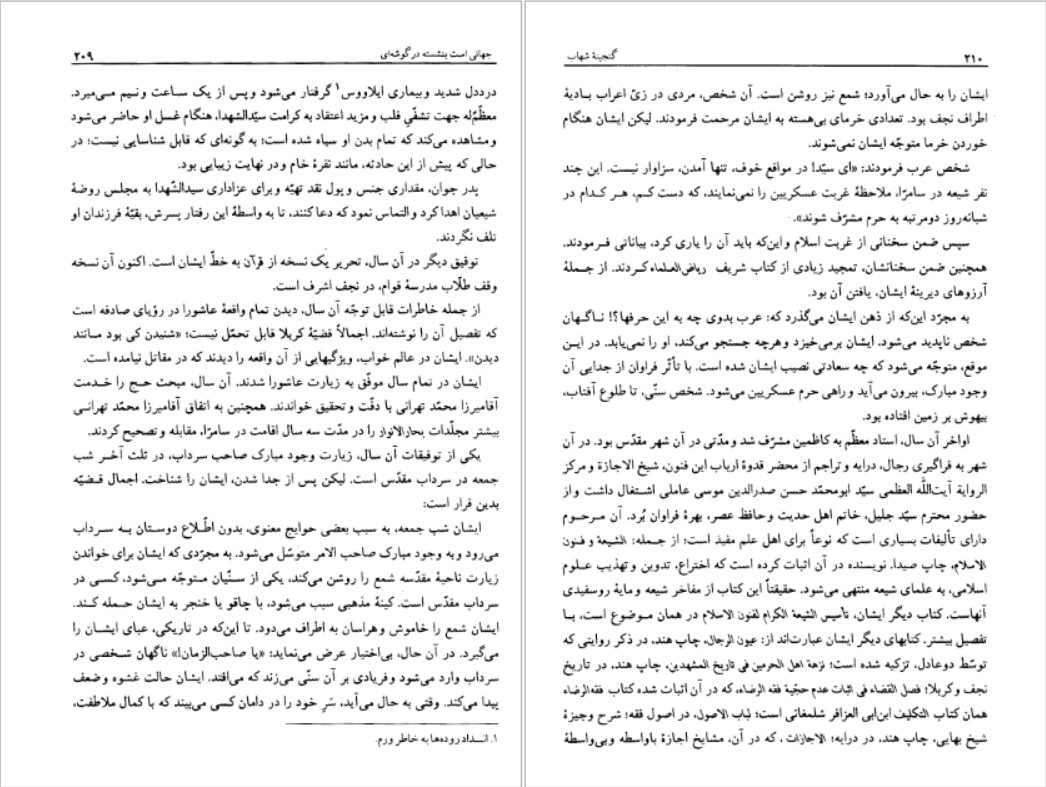 جهانی است بنشسته در گوشه‌ای ۲۰۹
درددل شدید وبیماری ایلاووس۱ گرفتار می‌شود وپس از یک ساعت ونیم می‌میرد.
معظّم‌له جهت تشفّیِ قلب و مزید اعتقاد به کرامت سیّدالشهدا، هنگام غسل او حاضر می‌شود
ومشاهده می‌کند که تمام بدن او سیاه شده است؛ به گونه‌ای که قابل شناسایی نیست؛ در
حالی که پیش از این حادثه، مانند نقرهٔ خام ودر نهایت زیبایی بود.
پدر جوان، مقداری جنس و پول نقد تهیّه وبرای عزاداری سیدالشّهدا به مجلس روضهٔ
شیعیان اهدا کرد و التماس نمود که دعا کنند، تا به واسطهٔ این رفتار پسرش، بقیّهٔ فرزندان او
تلف نگردند.
توفیق دیگر در آن سال، تحریر یک نسخه از قرآن به خطّ ایشان است. اکنون آن نسخه
وقف طلّاب مدرسهٔ قوام، در نجف اشرف است.
از جمله خاطرات قابل توجّه آن سال، دیدن تمام واقعهٔ عاشورا در رؤیای صادقه است
که تفصیل آن را نوشته‌اند. اجمالاً قضیّهٔ کربلا قابل تحمّل نیست؛ «شنیدن کی بود مانند
دیدن». ایشان در عالم خواب، ویژگیهایی از آن واقعه را دیدند که در مقاتل نیامده است.
ایشان در تمام سال موفّق به زیارت عاشورا شدند. آن سال، مبحث حج را خدمت
آقامیرزا محمّد تهرانی با دقّت و تحقیق خواندند. همچنین به اتفاق آقامیرزا محمّد تهرانی
بیشتر مجلّدات بحارالانوار را در مدّت سه سال اقامت در سامرّا، مقابله و تصحیح کردند.
یکی از توفیقات آن سال، زیارت وجود مبارک صاحب سرداب، در ثلث آخر شب
جمعه در سرداب مقدّس است. لیکن پس از جدا شدن، ایشان را شناخت. اجمال قضیّه
بدین قرار است:
ایشان شب جمعه، به سبب بعضی حوایج معنوی، بدون اطّلاع دوستان به سرداب
می‌رود وبه وجود مبارک صاحب الامر متوسّل می‌شود. به مجرّدی که ایشان برای خواندن
زیارت ناحیهٔ مقدّسه شمع را روشن می‌کند، یکی از سنّیان متوجّه می‌شود، کسی در
سرداب مقدّس است. کینهٔ مذهبی سبب می‌شود، با چاقو یا خنجر به ایشان حمله کند.
ایشان شمع را خاموش وهراسان به اطراف می‌دود. تا این‌که در تاریکی، عبای ایشان را
می‌گیرد. در آن حال، بی‌اختیار عرض می‌نماید: «یا صاحب‌الزمان!» ناگهان شخصی در
سرداب وارد می‌شود وفریادی بر آن سنّی می‌زند که می‌افتد. ایشان حالت غشوه وضعف
پیدا می‌کند. وقتی به حال می‌آید، سَرِ خود را در دامان کسی می‌بیند که با کمال ملاطفت،
۱. انسداد روده‌ها به خاطر ورم.
گنجینهٔ شهاب ۲۱۰
ایشان را به حال می‌آورد؛ شمع نیز روشن است. آن شخص، مردی در زیّ اعراب بادیهٔ
اطراف نجف بود. تعدادی خرمای بی‌هسته به ایشان مرحمت فرمودند. لیکن ایشان هنگام
خوردن خرما متوجّه ایشان نمی‌شوند.
شخص عرب فرمودند: «ای سیّد! در مواقع خوف، تنها آمدن، سزاوار نیست. این چند
نفر شیعه در سامرّا، ملاحظهٔ غربت عسکریین را نمی‌نمایند، که دست کم، هر کدام در
شبانه‌روز دومرتبه به حرم مشرّف شوند».
سپس ضمن سخنانی از غربت اسلام واین‌که باید آن را یاری کرد، بیاناتی فرمودند.
همچنین ضمن سخنانشان، تمجید زیادی از کتاب شریف ریاض‌العلماء کردند. از جملهٔ
آرزوهای دیرینهٔ ایشان، یافتن آن بود.
به مجرّد این‌که از ذهن ایشان می‌گذرد که: عرب بدوی چه به این حرفها؟! ناگهان
شخص ناپدید می‌شود. ایشان برمی‌خیزد وهرچه جستجو می‌کند، او را نمی‌یابد. در این
موقع، متوجّه می‌شود که چه سعادتی نصیب ایشان شده است. با تأثّر فراوان از جدایی آن
وجود مبارک، بیرون می‌آید و راهی حرم عسکریین می‌شود. شخص سنّی، تا طلوع آفتاب،
بیهوش بر زمین افتاده بود.
اواخر آن سال، استاد معظّم به کاظمین مشرّف شد و مدّتی در آن شهر مقدّس بود. در آن
شهر به فراگیری رجال، درایه و تراجم از محضر قدوهٔ ارباب این فنون، شیخ الاجازة و مرکز
الروایة آیت‌اللّه العظمی سیّد ابومحمّد حسن صدرالدین موسی عاملی اشتغال داشت واز
حضور محترم سیّد جلیل، خاتم اهل حدیث وحافظ عصر، بهرهٔ فراوان بُرد. آن مرحوم
دارای تألیفات بسیاری است که نوعاً برای اهل علم مفید است؛ از جمله: الشیعة و فنون
الاسلام، چاپ صیدا. نویسنده در آن اثبات کرده است که اختراع، تدوین و تهذیب علوم
اسلامی، به علمای شیعه منتهی می‌شود. حقیقتاً این کتاب از مفاخر شیعه و مایهٔ روسفیدی
آنهاست. کتاب دیگر ایشان، تأسیس الشیعة الکرام لفنون الاسلام در همان موضوع است، با
تفصیل بیشتر. کتابهای دیگر ایشان عبارت‌اند از: عیون الرجال، چاپ هند، در ذکر روایتی که
توسّط دوعادل، تزکیه شده است؛ نزهة اهل الحرمین فی تاریخ المشهدین، چاپ هند، در تاریخ
نجف وکربلا؛ فصل القضاء فی اثبات عدم حجّیة فقه الرضاء، که در آن اثبات شده کتاب فقه‌الرضاء
همان کتاب التکلیف ابن‌ابی العزافر شلمغانی است؛ لباب الاصول، در اصول فقه؛ شرح وجیزهٔ
شیخ بهایی، چاپ هند، در درایه؛ الاجازات، که در آن، مشایخ اجازهٔ باواسطه وبی‌واسطهٔ